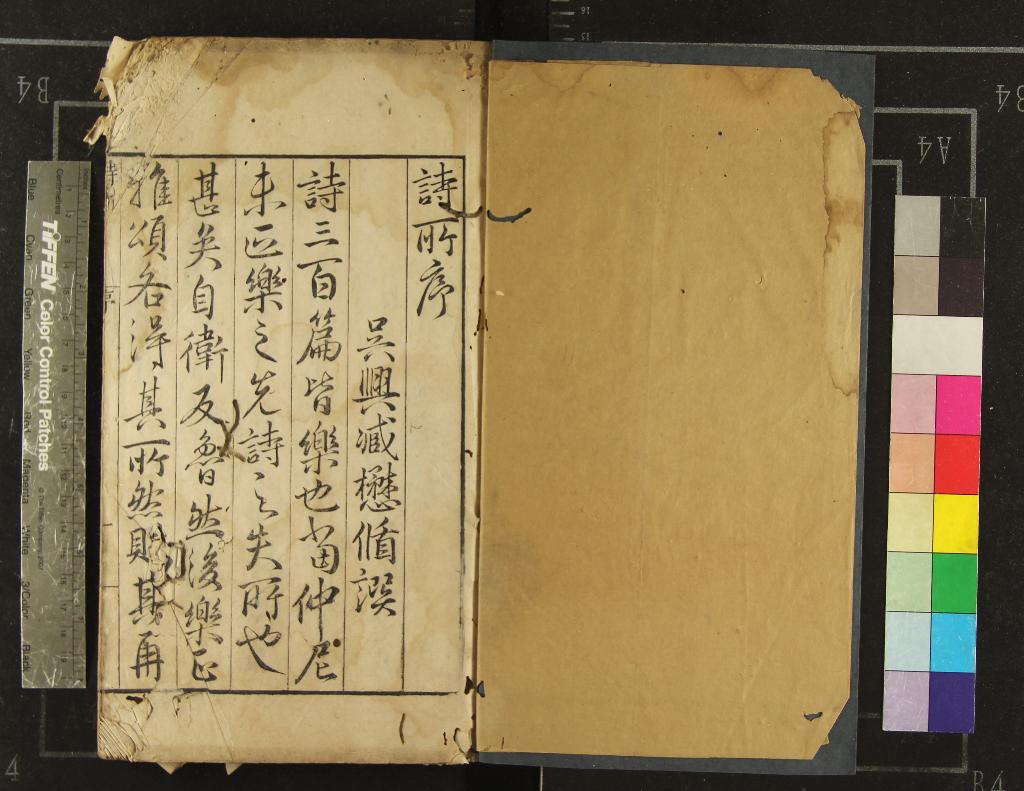 詩所序
吳興臧懋循譔
詩三百篇皆樂也當仲尼
未正樂之先詩之失所也
甚矣自衛反魯然後樂正
雅頌各得其所然則其再
B4
B4
A4
4
B4
TIFFEN Color Control Patches
Centimetres
Blue
Cyan
Green
Yellow
Red
Magenta
White
3/Color
Black